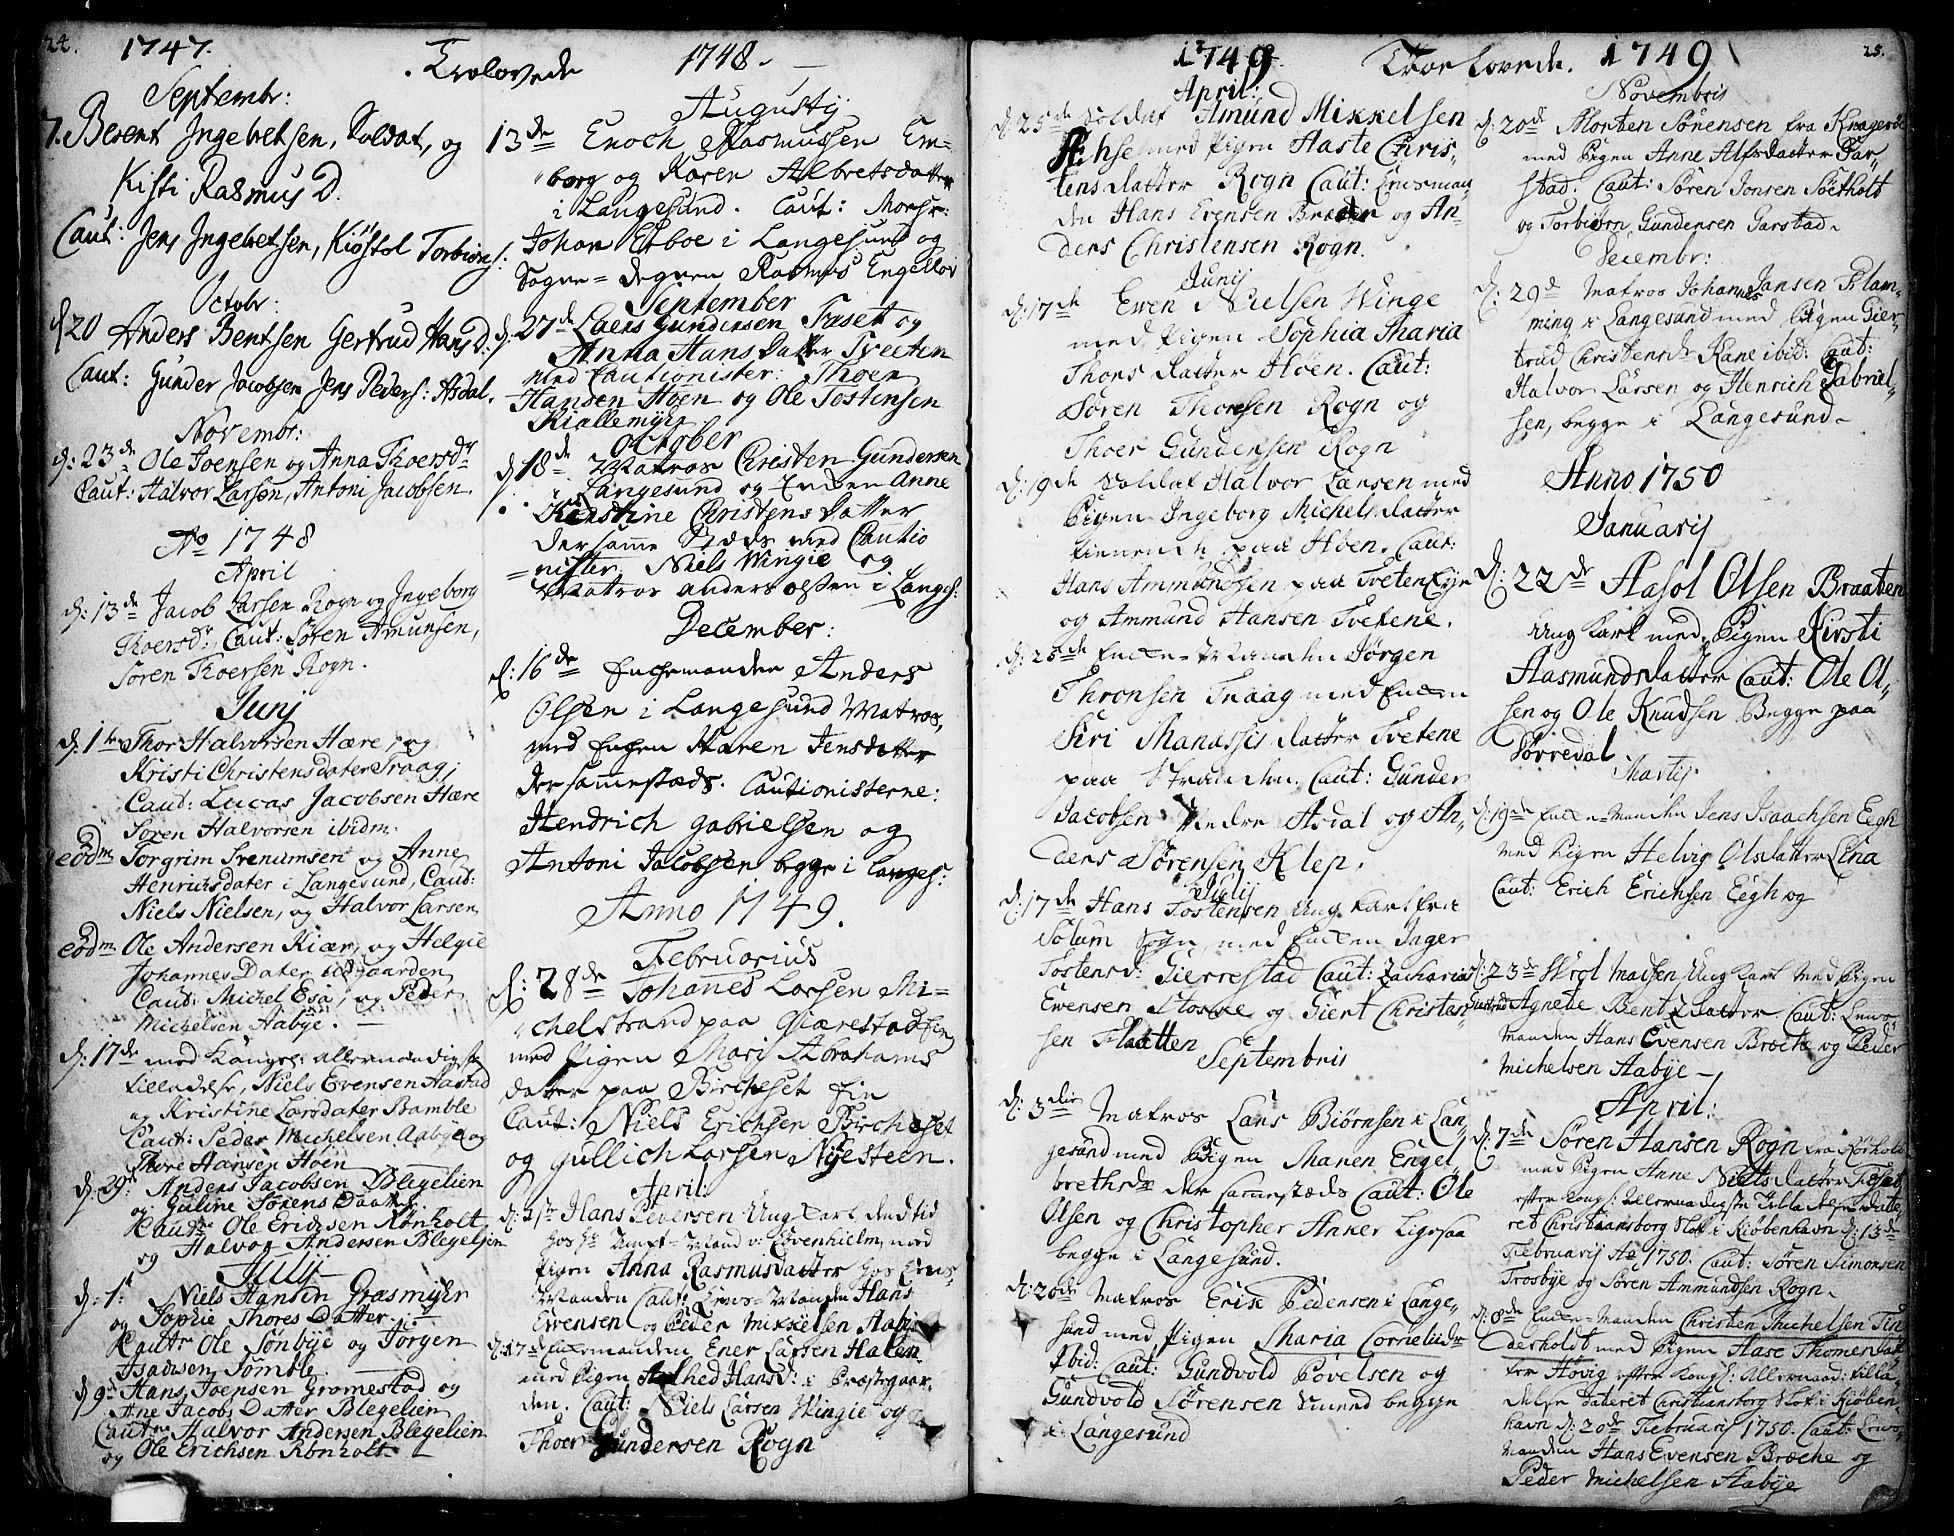 24.
1747.
Trolovede
1748.
Septembr:
7. Berent Ingebretsen, Soldat, og
Kisti Rasmus D.
Caut: Jens Ingebretsen, Kiøstol Torbiøns:
Octobr:
d 20 Anders Bentsen Gertrud Hans D:
Caut: Gunder Jacobsen Jens Peders: Asdal.
Novembr:
d: 23de Ole Joensen og Anna Thoersdr
Caut: Halvor Larsen, Antoni Jacobsen.
Ao 1748
April
d: 13de Jacob Larsen Rogn og Ingeborg
Thoersdr, Caut: Søren Amunsen,
Søren Thoersen Rogn.
Junj
d. 1te Thor Halvorsen Hære, og
Kristi Christensdater Traag,
Caut: Lucas Jacobsen Hære
Søren Halvorsen ibidm.
eodm Torgrim Svenumsen og Anne
Henrichsdater i Langesund, Caut:
Niels Nielsen, og Halvor Larsen
eodm Ole Andersen Kiær, og Helgie
Johannes Dater
Caut: Michel Esa, og Peder
Michelsen Aabye.
d. 17de med Kongel: allernaadigste
tilladelse, Niels Evensen Aastad
og Kristine Larsdater Bamble
Caut: Peder Michelsen Aabye og
Thore Hansen Høen
d: 29: Anders Jacobsen Blegelien
og Guline Sørens Daatter
Cautr Ole Erichsen Rønholt
og Halvor Andersen Blegelien
Julij
d: 1: Niels Hansen Grasmyhr
og Sophie Thores Datter
Cautr Ole Sønbye og Jørgen
Isachsen Tømble
d 9: Hans Joensen Gromestad og
Ane Jacobs Datter Blegelien
Cautr Halvor Andersen Blegelien
og Ole Erichsen Rønholt
Augustij
13de Enoch Rasmussen Em=
borg og Karen Albretsdatter
i Langesund. Caut: Monsr:
Johan Etboe i Langesund og
Sogne=degnen Rasmus Engelløv
September
d: 27de Laers Gundersen Traset og
Anna Hans Datter Tveeten
med Cautionister: Thoer
Hansen Høen og Ole Tostensen
Kiallemyhr
October
d 18de Matros Christen Gundersen
i Langesund og Enken Anne
Kirstine Christens Datter
der samme Steds med Cautio
=nister Niels Wingie og
Matros anders olssen i Langes:
December:
d: 16de Enchemanden Anders
Olsen i Langesund Matros,
med Enchen Maren Jensdatter
der sammestæds. Cautionisterne:
Hendrich Gabrielsen og
Antoni Jacobsen begge i Langes:
Anno 1749.
Februarius
d: 28de Johanes Larsen Mi=
chelstrand paa Giærestad
med Pigen Mari Abrahams
dater paa Bircheset
Caut: Niels Erichsen Bircheset
og Gullich Larsen Nyesteen.
April:
d: Hans Pedersen Ung Karl, den tid
hos Hr , med
Pigen Anna Rasmusdatter hos Lens
Manden Caut: Lens=Manden Hans
Evensen og Peder Mikkelsen Aabye
d: 17de Enkemanden Ener Larsen Halen
med Pigen Aalhed Hansd: i Præstegaar,
den. Caut: Niels Larsen Wingie og
Thoer Gundersen Rogn
1749
Troelovede.
1749
25.
April:
d: 25de Soldat Amund Mikkelsen
med Pigen Haste Chris,
tensdatter Rogn Caut: Lensman
den Hans Evensen Bræcke og An=
ders Christensen Rogn.
Junij
d: 17de Ewen Nielsen Winge
med Pigen Sophia Maria
Thorsdatter Høen. Caut:
Søren Thoresen Rogn og
Thoer Gundersen Rogn
d: 19de Soldat Halvor Larsen med
Pigen Ingeborg Michelsdatter
tienende paa Høen. Caut:
Hans Ammundsen paa Tveten Eye
og Ammund Hansen Tvetene.
d: 28de Enke=Manden Jørgen
Thronsen Traag med Enken
Siri Manassis datter Tvetene
paa Stranden. Caut: Gunder
Jacobsen Nedre Asdal og An,
ders Sørensen Klep.
Julij
d: 17de Hans Tostensen Ung Karl fra
Solum Sogn, med Enken Inger
Tostensd: Gierrestad Caut: Zacharias
Evensen Stokke og Giert Christen
sen Flaatten
Septembris
d: 3die Matros Lars Biørnsen i Lan,
gesund med Pigen Maren Engel,
brethsdr der sammestæds Caut: Ole
Olsen og Christopher Anker Ligosaa
begge i Langesund.
d: 20de Matros Erik Pedersen i Lange,
sund med Pigen Maria Corneliidr
Ibid: Caut: Gundvold Povelsen og
Gundvold Sørensen Smend begge
i Langesund
Novembris
d: 20d Morten Sørensen fra Kragerøe
med Pigen Anne Alfsdatter Gar,
stad. Caut: Søren Jonsen Søetholt
og Torbiørn Gundersen Garstad.
Decembr:
d: 29d Matros Johannes Jansen Flam,
ming i Langesund med Pigen Gier,
trud Christensdr Kane ibid: Caut:
Halvor Larsen og Henrich Gabriel,
sen, begge i Langesund.
Anno 1750
Januarij
d: 22de Aasol Olsen Braaten
Ung Karl med Pigen Kirsti
Aasmundsdatter Caut: Ole Ol,
sen og Ole Knudsen Begge paa
Sørredal
Martij
d: 19de Enke=Manden Jens Isaachsen Eegh
med Pigen Helvig Olsdatter Lina
Caut: Erich Erichsen Eegh og
d: 23de Wrol Madsen Ung Karl med Pigen
Agnete Bentzdatter Caut: Lens
manden Hans Evensen Bræcke og Peder
Michelsen Aabye
April:
d: 7de Søren Hansen Rogn fra Rørholt
med Pigen Anne Nielsdatter
efter Kongl: Allernaadigste Tilladelse date,
ret Christiansborg Slot i Kiøbenhavn d: 13de
Februarij Ao 1750. Caut: Søren Simonsen
Trosbye og Søren Ammundsen Rogn.
d: 8de Enke=Manden Christen Michelsen Tin
derholdt med Pigen Aase Thomesdat
ter Høvig efter Kongl: Allernaad: tilla,
delse dateret Christiansborg Slot i Kiøben,
havn d: 20de Februarj 1750. Caut: Lens,
manden Hans Evensen Bræcke og
Peder Michelsen Aabye